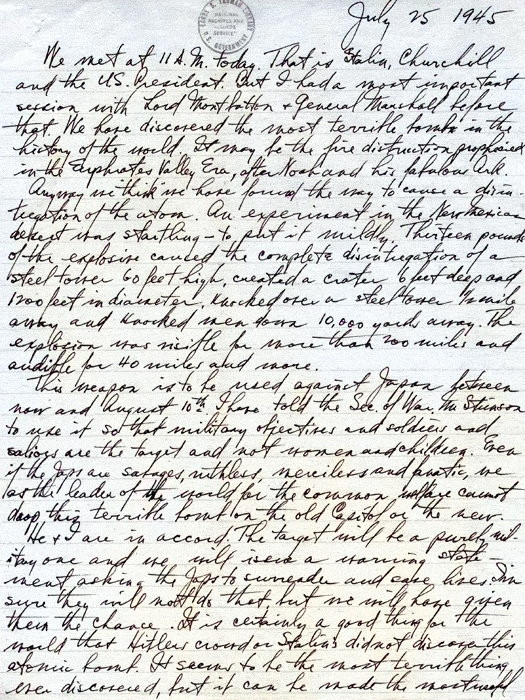 HARRY S. TRUMAN LIBRARY
"NATIONAL
ARCHIVES AND
RECORDS
SERVICE"
U.S. GOVERNMENT
July 25 1945
We met at 11 A.M. today. That is Stalin, Churchill
and the U.S. President. But I had a most important
session with Lord Mountbatten & General Marshall before
that. We have discovered the most terrible bomb in the
history of the world. It may be the fire distruction prophesied
in the Euphrates Valley Era, after Noah and his fabulous Ark.
Anyway we think we have found the way to cause a disin-
tegration of the atom. An experiment in the New Mexican
desert was startling - to put it mildly. Thirteen pounds
of the explosive caused the complete disintegration of a
steel tower 60 feet high, created a crater 6 feet deep and
1200 feet in diameter, knocked over a steel tower 1/2 mile
away and knocked men down 10,000 yards away. The
explosion was visible for more than 200 miles and
audible for 40 miles and more.
This weapon is to be used against Japan between
now and August 10th. I have told the Sec. of War, Mr. Stimson
to use it so that military objectives and soldiers and
sailors are the target and not women and children. Even
if the Japs are savages, ruthless, merciless and fanatic, we
as the leader of the world for the common welfare cannot
drop this terrible bomb on the old Capitol or the new.
He & I are in accord. The target will be a purely mil-
itary one and we will issue a warning state-
ment asking the Japs to surrender and save lives. I'm
sure they will not do that, but we will have given
them the chance. It is certainly a good thing for the
world that Hitler's crowd or Stalin's did not discover this
atomic bomb. It seems to be the most terrible thing
ever discovered, but it can be made the most useful